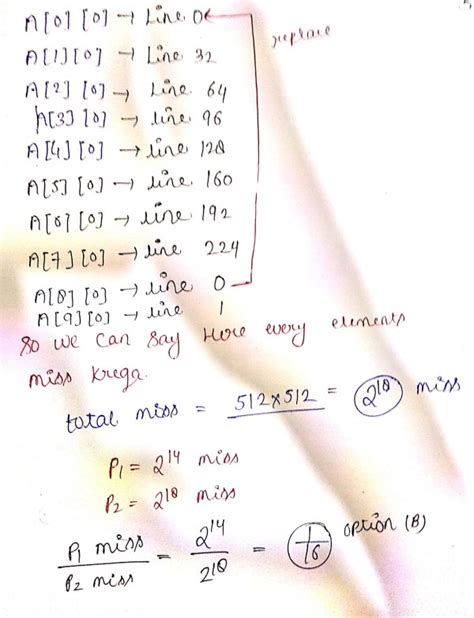 A[0][0] → Line 0
replace
A[1][0] → Line 32
A[2][0] → Line 64
A[3][0] → line 96
A[4][0] → line 128
A[5][0] → line 160
A[6][0] → line 192
A[7][0] → line 224
A[8][0] → line 0
A[9][0] → line 1
So we can say Here every elements
miss krega.
total miss = 512×512 = 2^18 miss
P1 = 2^14 miss
P2 = 2^18 miss
P1 miss / P2 miss = 2^14 / 2^18 = 1/16 option (B)